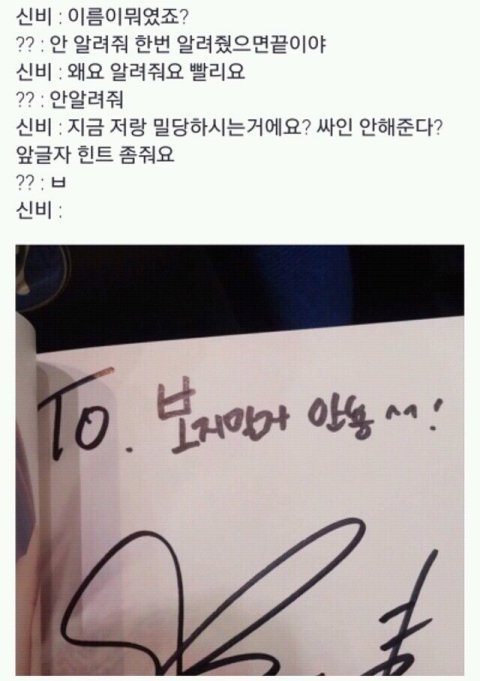 신비 : 이름이뭐였죠?
?? : 안 알려줘 한번 알려줬으면끝이야
신비 : 왜요 알려줘요 빨리요
?? : 안알려줘
신비 : 지금 저랑 밀당하시는거에요? 싸인 안해준다?
앞글자 힌트 좀줘요
?? : ㅂ
신비 :
To. 안뇽 ^^!